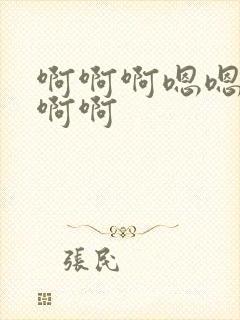 啊啊啊嗯嗯
啊啊
張民